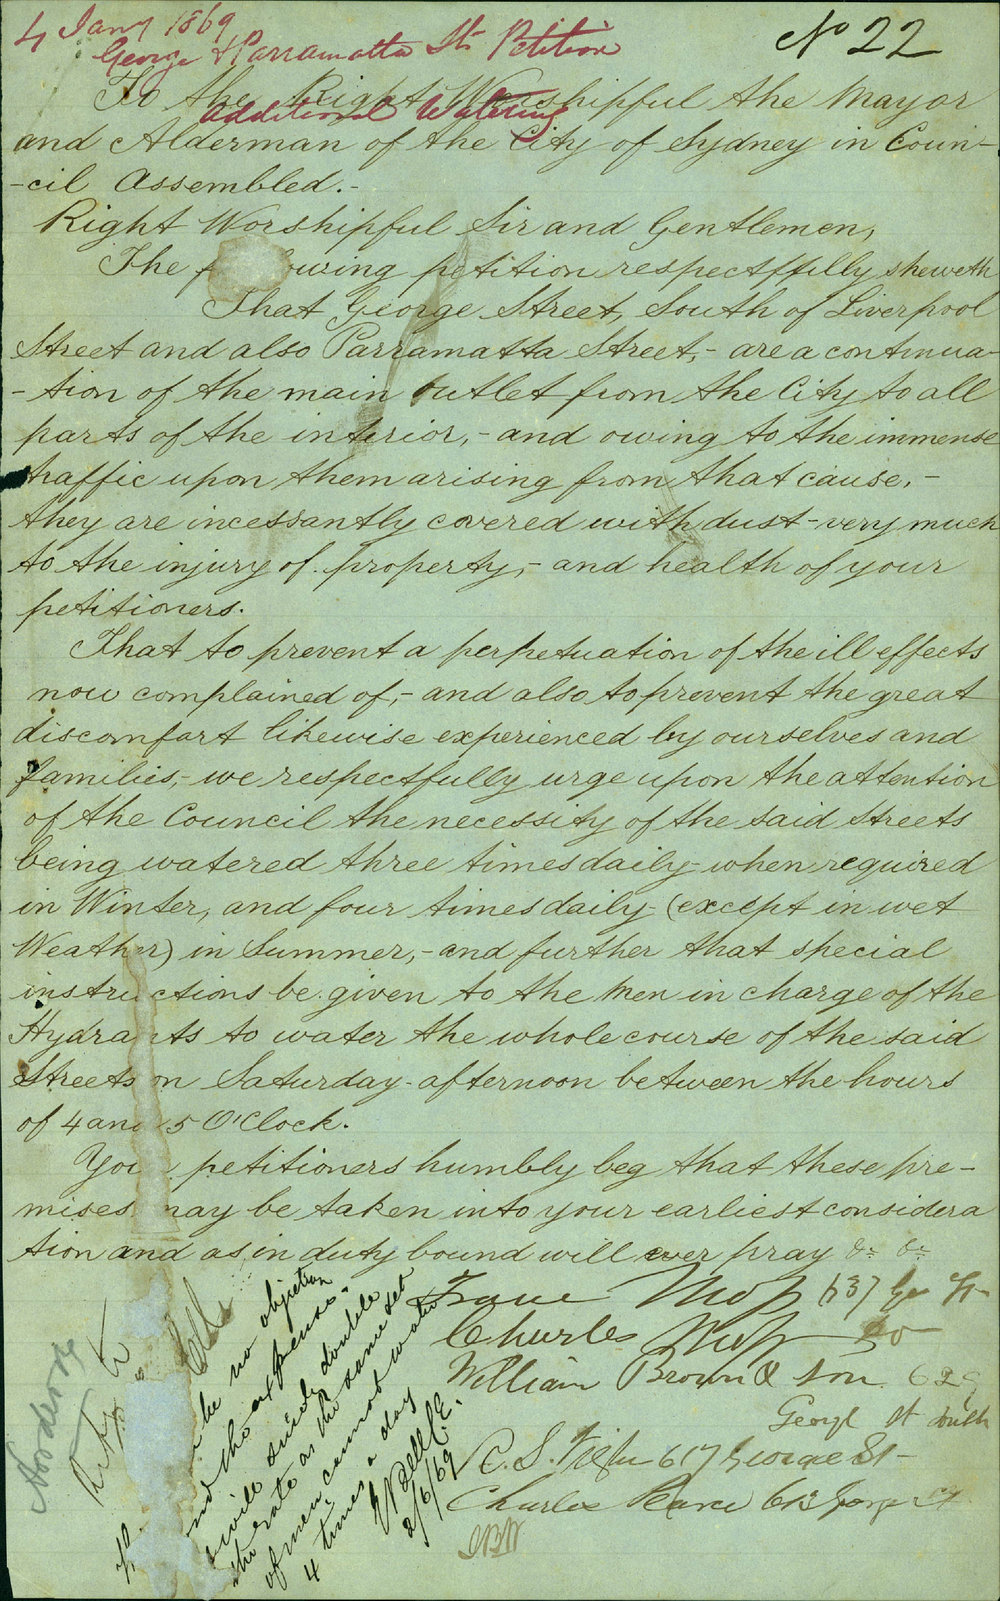 4 Jany 1869
No 22
George & Parramatta Sts Petition
Additional Watering
To the Right Worshipful the Mayor
and Alderman of the City of Sydney in Coun-
-cil Assembled.-
Right Worshipful Sir and Gentlemen,
The f owing petition respectffully sheweth
That George Street, South of Liverpool
Street and also Parramatta Street,- are a continua-
-tion of the main outlet from the City to all
parts of the interior,- and owing to the immense
traffic upon them arising from that cause,-
they are incessantly covered with dust-very much
to the injury of property,- and health of your
petitioners.
That to prevent a perpetuation of the ill effects
now complained of,- and also to prevent the great
discomfort likewise experienced by ourselves and
families,- we respectfully urge upon the attention
of the Council the necessity of the said Streets
being watered three times daily- when required
in Winter, and four times daily- (except in wet
Weather) in Summer,- and further that special
instructions be given to the Men in charge of the
Hydra nts to water the whole course of the said
Streets on Saturday- afternoon between the hours
of 4 and 5 O'Clock.
You petitioners humbly beg that these pre-
mises may be taken into your earliest considera
tion and as in duty bound will ever pray &c &c
637 Geo St
Charles do
William Brown & Son 629
George St South
617 George St-
Charles Pearce 613 George St
be no objection
and the expense.
will double
the rate as the same set
of men cannot water
4 times a day
Bell C.E.
2/6/69